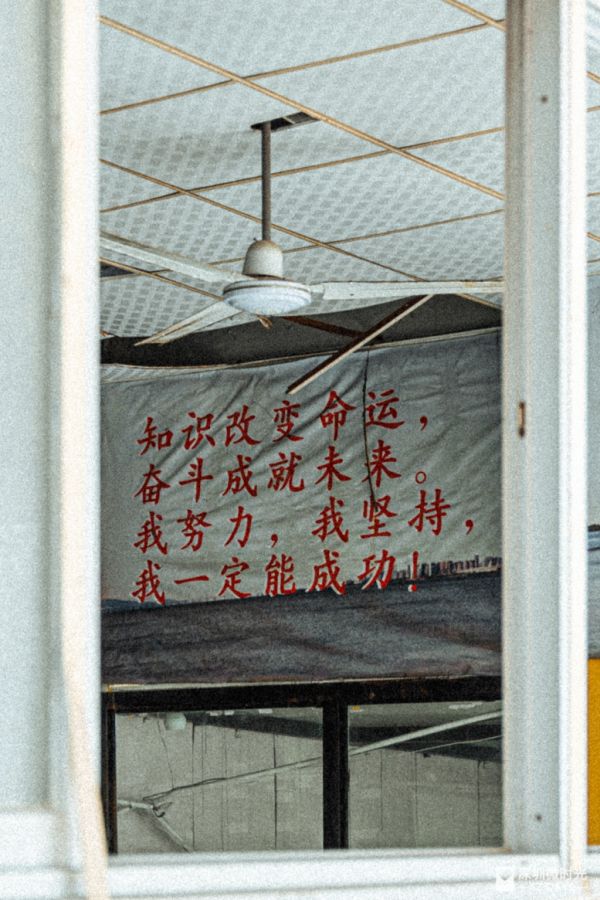 知识改变命运，
奋斗成就未来。
我努力，我坚持，
我一定能成功！